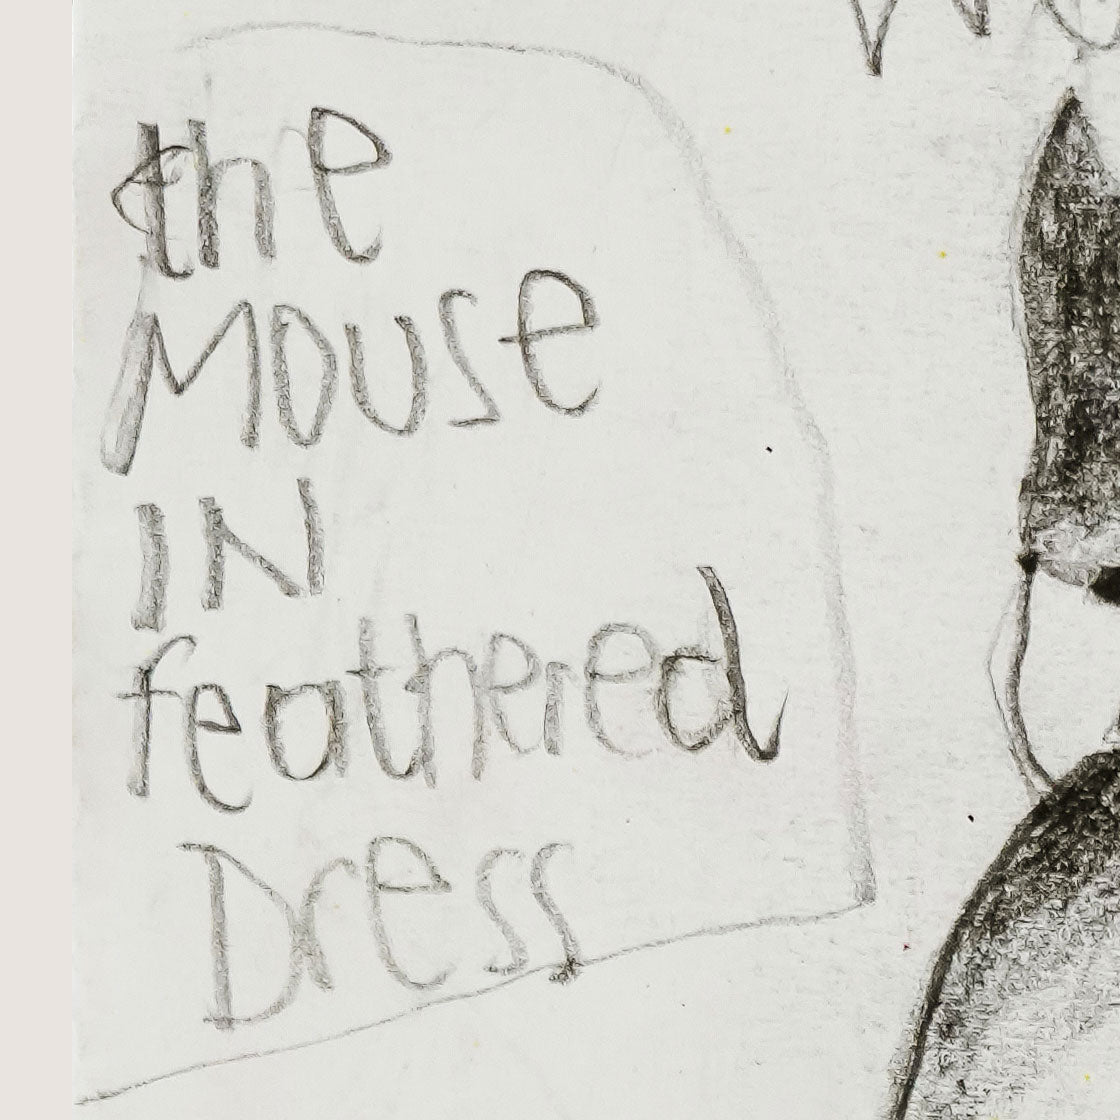 the
MOUSE
IN
feathered
Dress